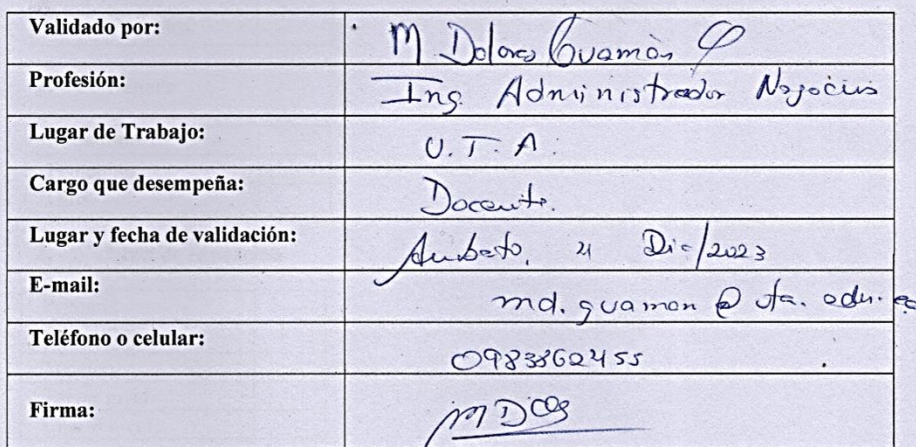 Validado por: M Dolores Guamán G
Profesión: Ing. Administrador Negocios
Lugar de Trabajo: U.T.A.
Cargo que desempeña: Docente.
Lugar y fecha de validación: Ambato, 4 Dic/2023
E-mail: md.guaman@uta.edu.ec
Teléfono o celular: 0983862455
Firma: